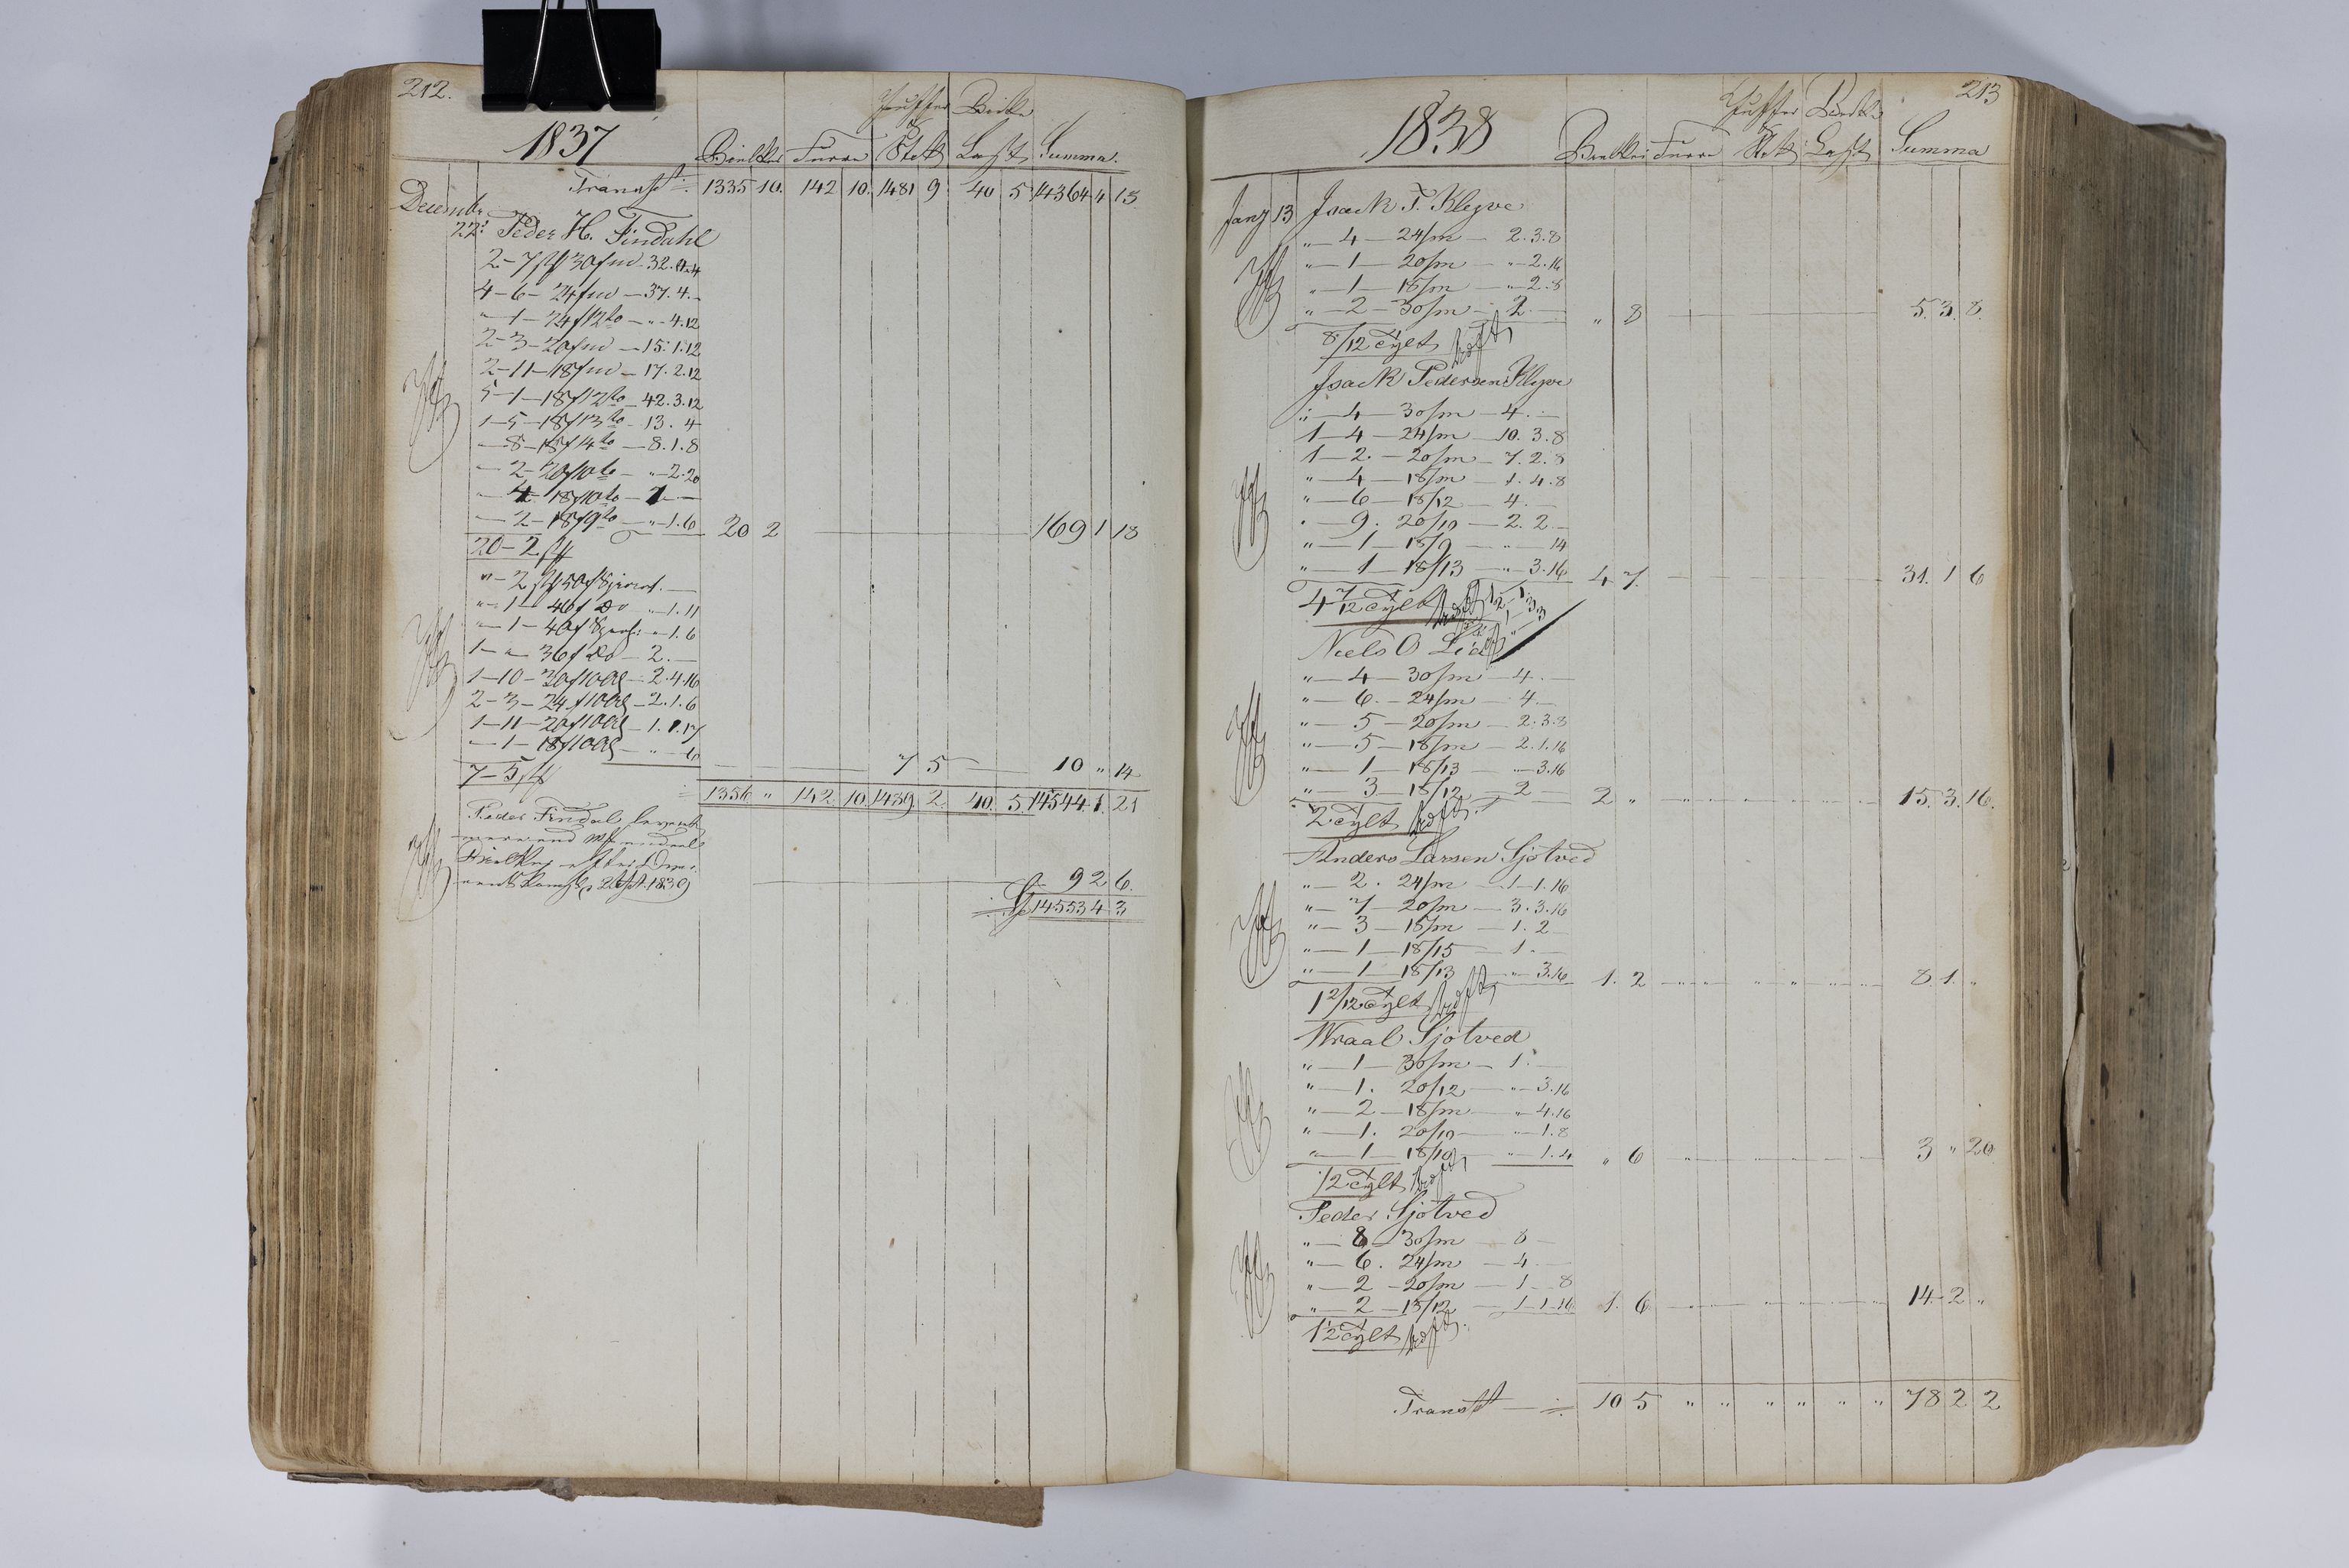 212.
1837
Bielker Furre Stok Last Summa.
Transpt 1335 10. 142 10. 1481 9 40 5 14364 4 13
Decembr
22. Peder H. Findahl
4-6- 24 fm -37.4.-
"-1- 24 f 12 to - " - 4.12
2-3-20 fm -15.1.12
2-11-18 fm - 17.2.12
5-1-18 f 12 to - 42.3.12
1-5-18 f 13 to - 13. 4
-8-18 f 14 to - 8.1.8
-2-20 f 10 to - "-2.20
-4-18 f 10 to - 1 -
-2-18 f 9 to - "-1.6 20 2 169 1 18
20-2
"-1- 46 f Do "-1.11
1-"- 36 f Do - 2.-
1-10-30 f 10 Al - 2.4.16
2-3-24 f 10 Al - 2.1.6
1-11-20 f 10 Al - 1.1.17
-1-18 f 10 Al - " - 6
7-5 7 5 10 " 14
1356 " 142 10 1489 2 40. 5 14544 1 21
Peder Findal
1839 92 6.
14553 4 3
213
1838
Bielker Furre Stok Last Summa
Jany 13 Isack P. Kleyve
"-4-24/m - 2.3.8
"-1-20/m - "-2.16
"-1-18/m - "-2.8
"-2-30/m - 2.- " 8 5. 3. 8.
8/12 Tylt
Isack Pedersen Kleyve
"-4-30/m - 4.-
1-4-24/m - 10.3.8
1-2.-20/m - 7.2.8
"-4-18/m - 1.4.8
"-6-18/12 - 4.-
"-9. 20/10 - 2.2.-
"-1-18/9 - " - 14
"-1-18/13 - "-3.16 4 7. 31. 1 6
4 7/12 Tylt
Niels O Lia
"-4-30/m - 4.-
"-6.-24/m - 4-
"-5-20/m - 2.3.8
"-5-18/m - 2.1.16
"-1-18/13 - "-3.16
"-3-18/12 - 2- 2 " 15. 3. 16.
2 Tylt
Anders Larsen Sjøtved
"-2. 24/m - 1-1.16
"-7-20/m - 3.3.16
"-3-18/m - 1.2
"-1-18/15 - 1.-
"-1-18/13 - "-3.16 1. 2 8. 1. "
1 2/12 Tylt
Wraal Sjøtved
"-1-30/m - 1.-
"-1. 20/12 - "-3.16
"-2-18/m - "-4.16
"-1. 20/10 - "-1.8
"-1-18/10 - "-1.4 " 6 3 " 20
1/2 Tylt
Peder Sjøtved
"-8-30/m - 8-
"-6. 24/m - 4.-
"-2-20/m - 1-8
"-2-18/12 - 1-1-16 1. 6 14. 2 "
1 1/2 Tylt
Transpt 10 5 " " " " " " 78 2 2